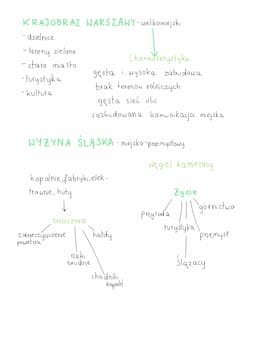 KRAJOBRAZ WARSZAWY - wielkomiejski
- dzielnice
- tereny zielone
- stare miasto
- turystyka
- kultura
Charakterystyka
gęsta i wysoka zabudowa
brak terenów rolniczych
gęsta sieć ulic
rozbudowana komunikacja miejska
WYŻYNA ŚLĄSKA - miejsko-przemysłowy
węgiel kamienny
kopalnie, fabryki, elek-
trownie, huty
zniszczenia
zanieczyszczenie
powietrza
rzeki
brudne
hałdy
chodniki
kopalń
Życie
przyroda
turystyka
górnictwo
przemysł
Ślązacy